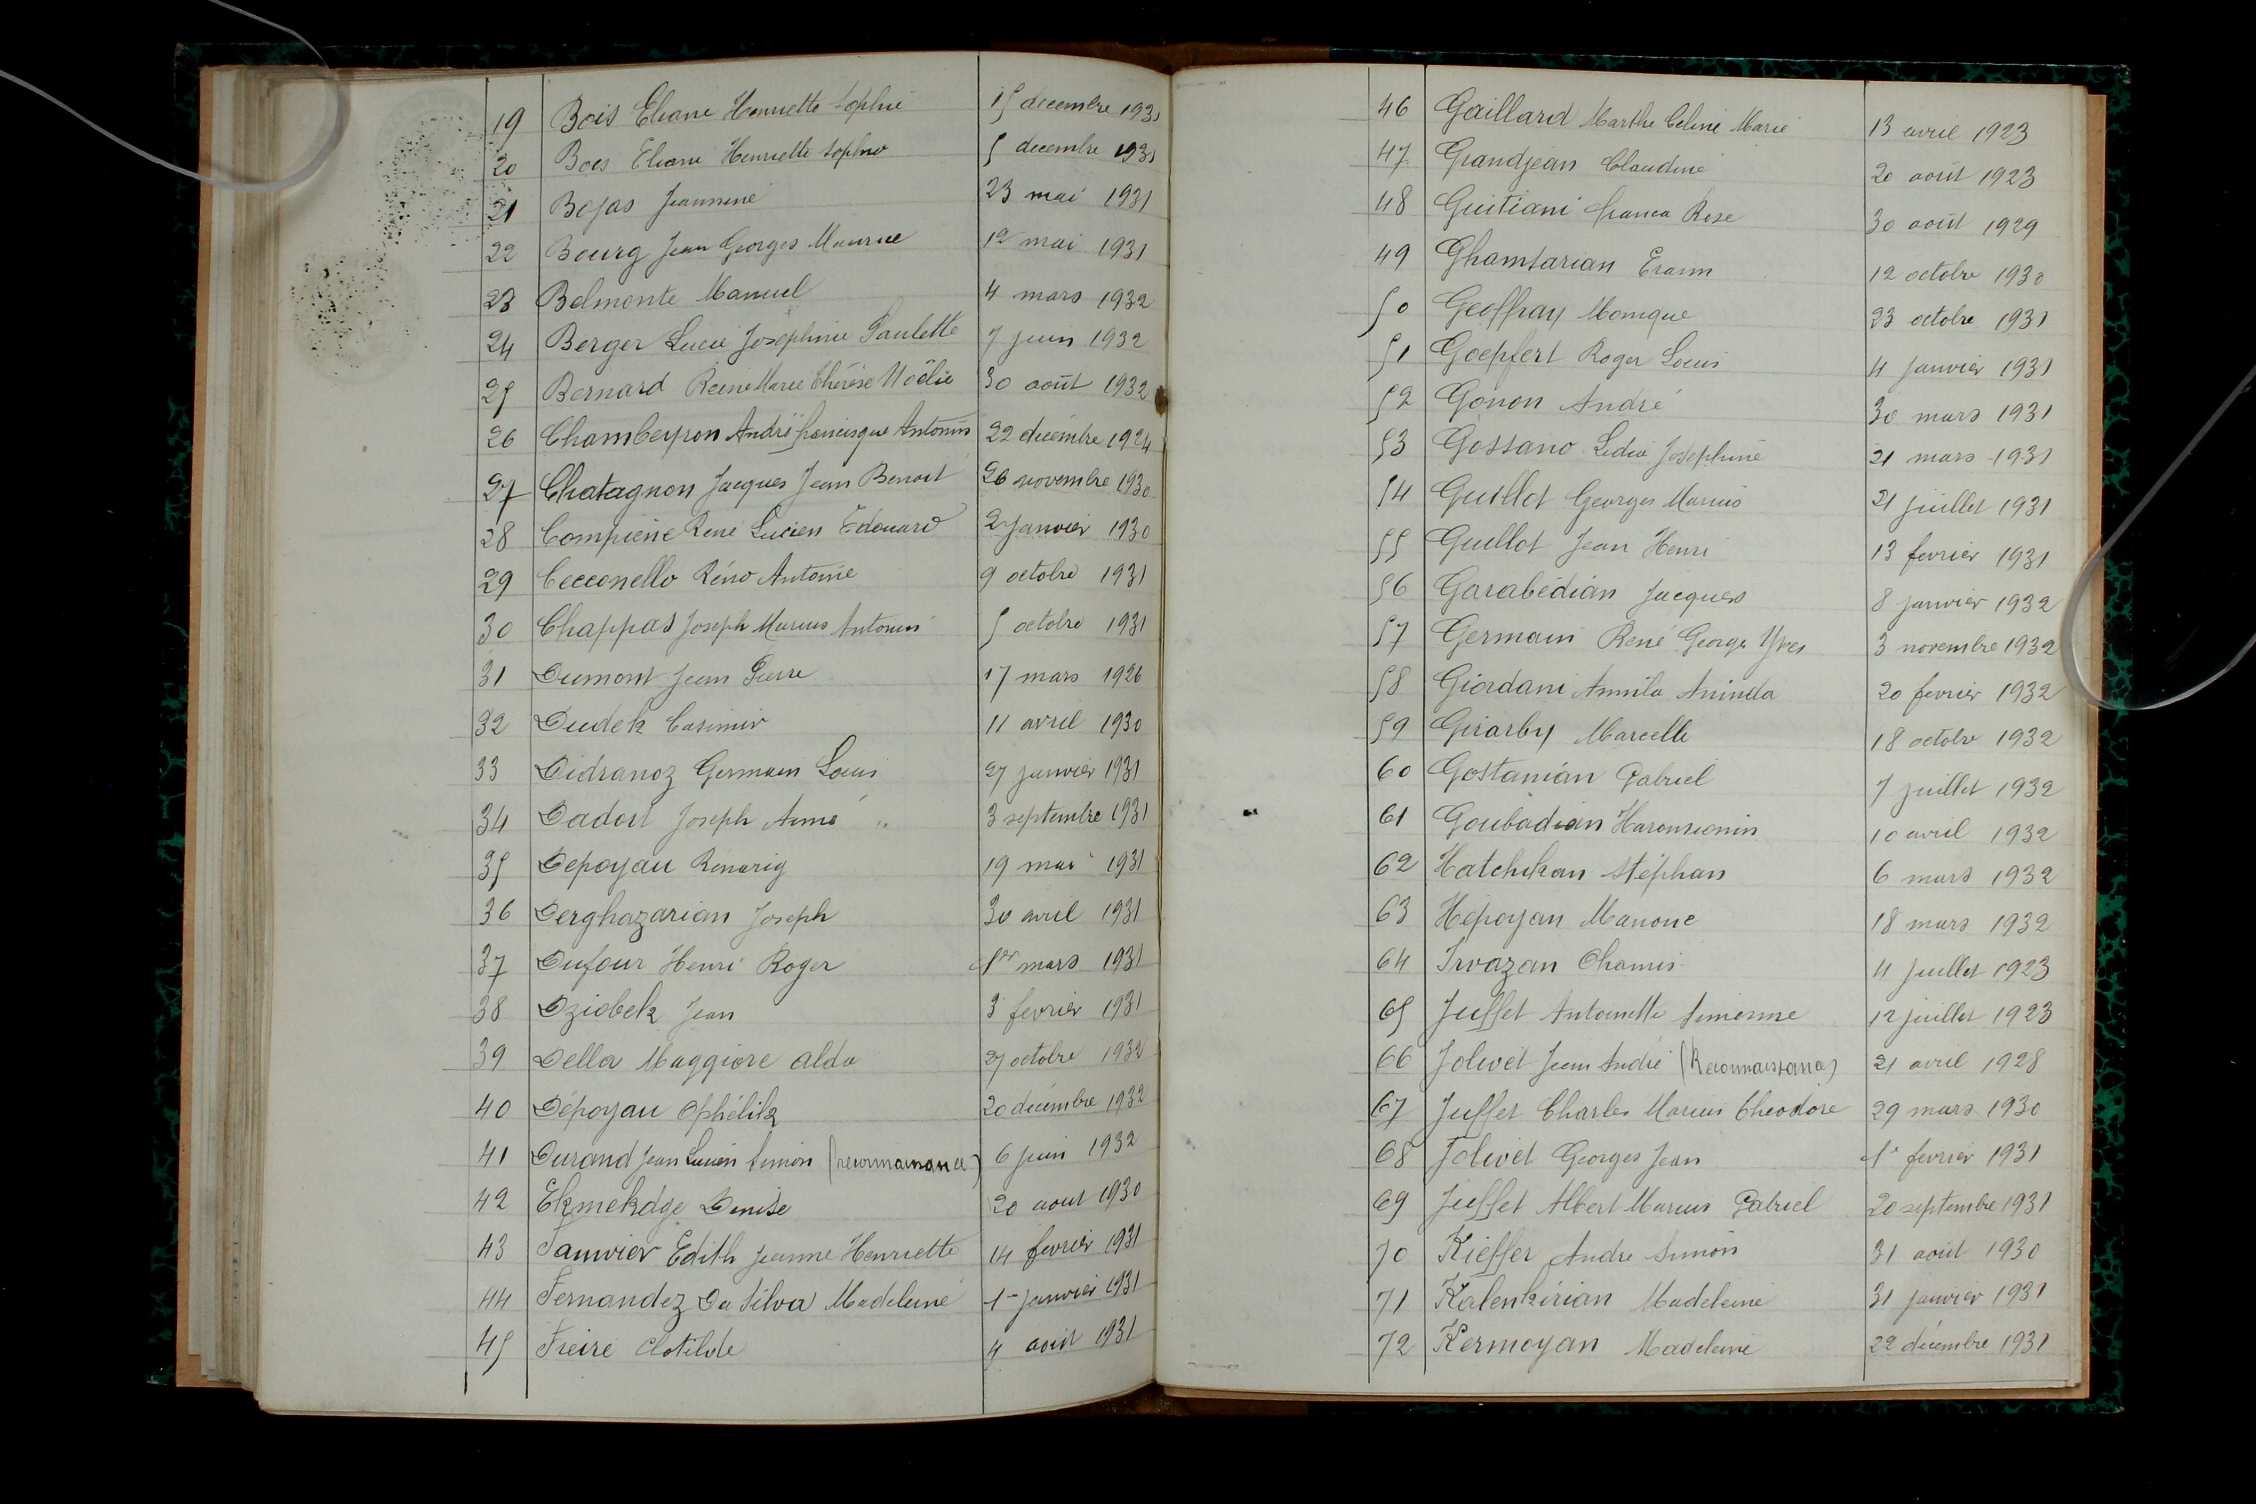 19 Bois Eliane Henriette Sophie 15 decembre 1931
20 Bois Eliane Henriette Sophie 5 decembre 1931
21 Bojas Jeannine 23 mai 1931
22 Bourg Jean Georges Maurice 12 mai 1931
23 Belmonte Manuel 4 mars 1932
24 Berger Lucie Josephine Paulette 7 juin 1932
25 Bernard Reine Marie Thérèse Noëlie 30 août 1932
26 Chambeyron André francisque Antonin 22 décembre 1924
27 Chatagnon Jacques Jean Benoit 26 novembre 1930
28 Compiene René Lucien Edouard 2 janvier 1930
29 Cecconello Réno Antoine 9 octobre 1931
30 Chappas Joseph Marius Antonin 5 octobre 1931
31 Dumont Jean Pierre 17 mars 1926
32 Dudek Casimir 11 avril 1930
33 Didranoz Germain Louis 27 janvier 1931
34 Dadort Joseph Aimé 3 septembre 1931
35 Depoyau Renarig 19 mai 1931
36 Derghazarian Joseph 30 avril 1931
37 Dufour Henri Roger 1er mars 1931
38 Dziobek Jean 3 fevrier 1931
39 Della Maggiore Aldo 27 octobre 1932
40 Dépoyau Ophélik 20 décembre 1932
41 Durand Jean Lucien Simon (reconnaissance) 6 juin 1932
42 Ekmekdge Denise 20 aout 1930
43 Fanvier Edith Jeanne Henriette 14 fevrier 1931
44 Fernandez Da Silva Madeleine 1er janvier 1931
45 Freire Clotilde 4 août 1931
46 Gaillard Marthe Celine Marie 13 avril 1923
47 Grandjean Claudine 20 août 1923
48 Guitiani franca Rose 30 août 1929
49 Ghamtarian Eramn 12 octobre 1930
50 Geoffray Monique 23 octobre 1931
51 Goepfert Roger Louis 4 janvier 1931
52 Gonon André 30 mars 1931
53 Gossano Lidia Josephine 21 mars 1931
54 Guillot Georges Marius 21 juillet 1931
55 Guillot Jean Henri 13 fevrier 1931
56 Garabédian Jacques 8 janvier 1932
57 Germain René George Yves 3 novembre 1932
58 Giordani Annila Aninda 20 fevrier 1932
59 Girarby Marcelle 18 octobre 1932
60 Gostanian Gabriel 7 juillet 1932
61 Goubadian Haronsionin 10 avril 1932
62 Hatchikan Stéphan 6 mars 1932
63 Hépoyan Manoue 18 mars 1932
64 Irvazan Chamis 11 juillet 1923
65 Juffet Antoinette Simonne 12 juillet 1923
66 Jolivet Jean André (Reconnaissance) 21 avril 1928
67 Juffet Charles Marius Theodore 29 mars 1930
68 Jolivet Georges Jean 1er fevrier 1931
69 Juffet Albert Marius Gabriel 20 septembre 1931
70 Kieffer Andre Simon 31 août 1930
71 Kalenkirian Madeleine 31 janvier 1931
72 Kermoyan Madeleine 22 décembre 1931